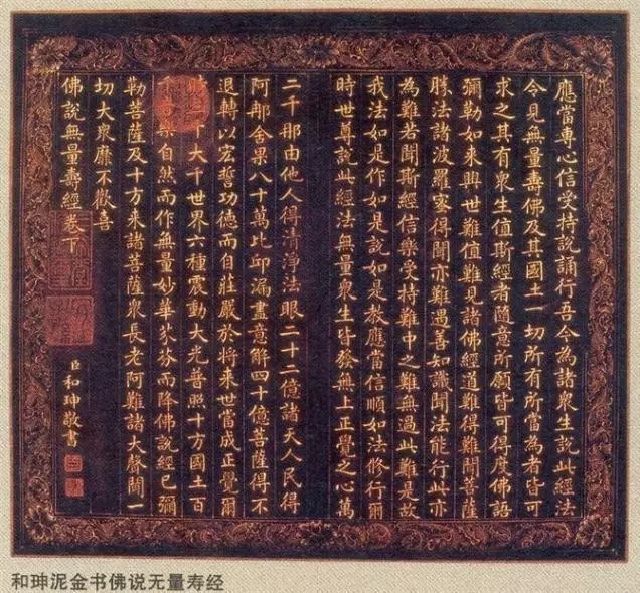 應當專心信受持說誦行吾今為諸衆生說此經法
今見無量壽佛及其國土一切所有所當為者皆可
求之其有衆生值斯經者隨意所願皆可得度佛語
彌勒如來興世難值難見諸佛經道難得難聞菩薩
勝法諸波羅蜜得聞亦難遇善知識聞法能行此亦
為難若聞斯經信樂受持難中之難無過此難是故
我法如是作如是說如是教應當信順如法修行爾
時世尊說此經法無量衆生皆發無上正覺之心萬
二千那由他人得清淨法眼二十二億諸天人民得
阿那含果八十萬比邱漏盡意解四十億菩薩得不
退轉以宏誓功德而自莊嚴於將來世當成正覺爾
大千世界六種震動大光普照十方國土百
樂自然而作無量妙華芬芬而降佛說經已彌
勒菩薩及十方來諸菩薩衆長老阿難諸大聲聞一
切大衆靡不歡喜
佛說無量壽經卷下
臣和珅敬書
和珅泥金书佛说无量寿经